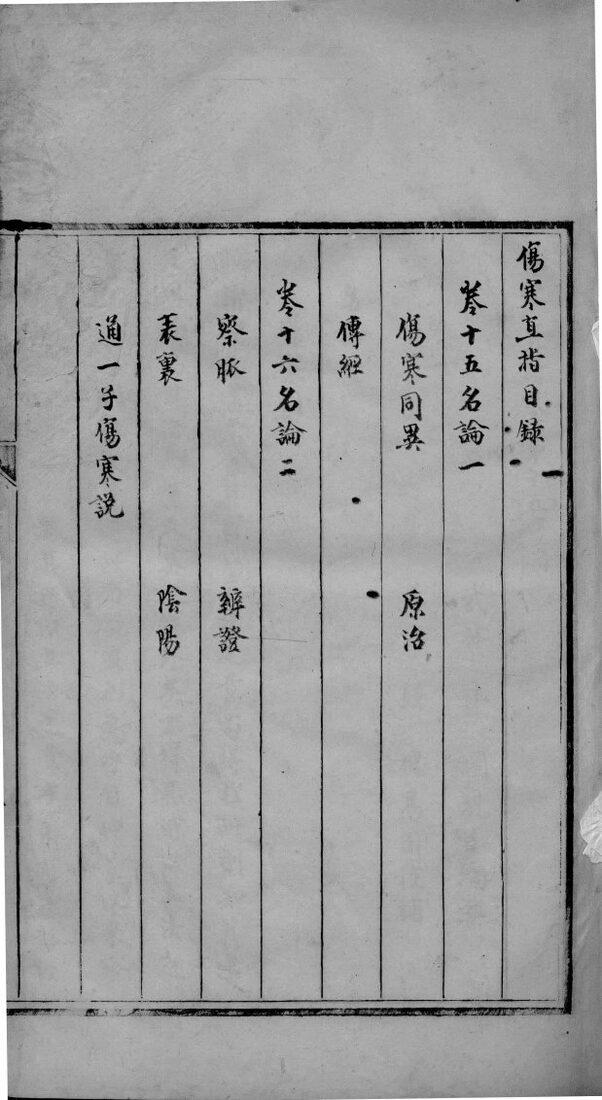 傷寒直指目錄
卷十五名論一
傷寒同異 原治
傳經
卷十六名論二
察脈 辨證
表裏 陰陽
通一子傷寒說